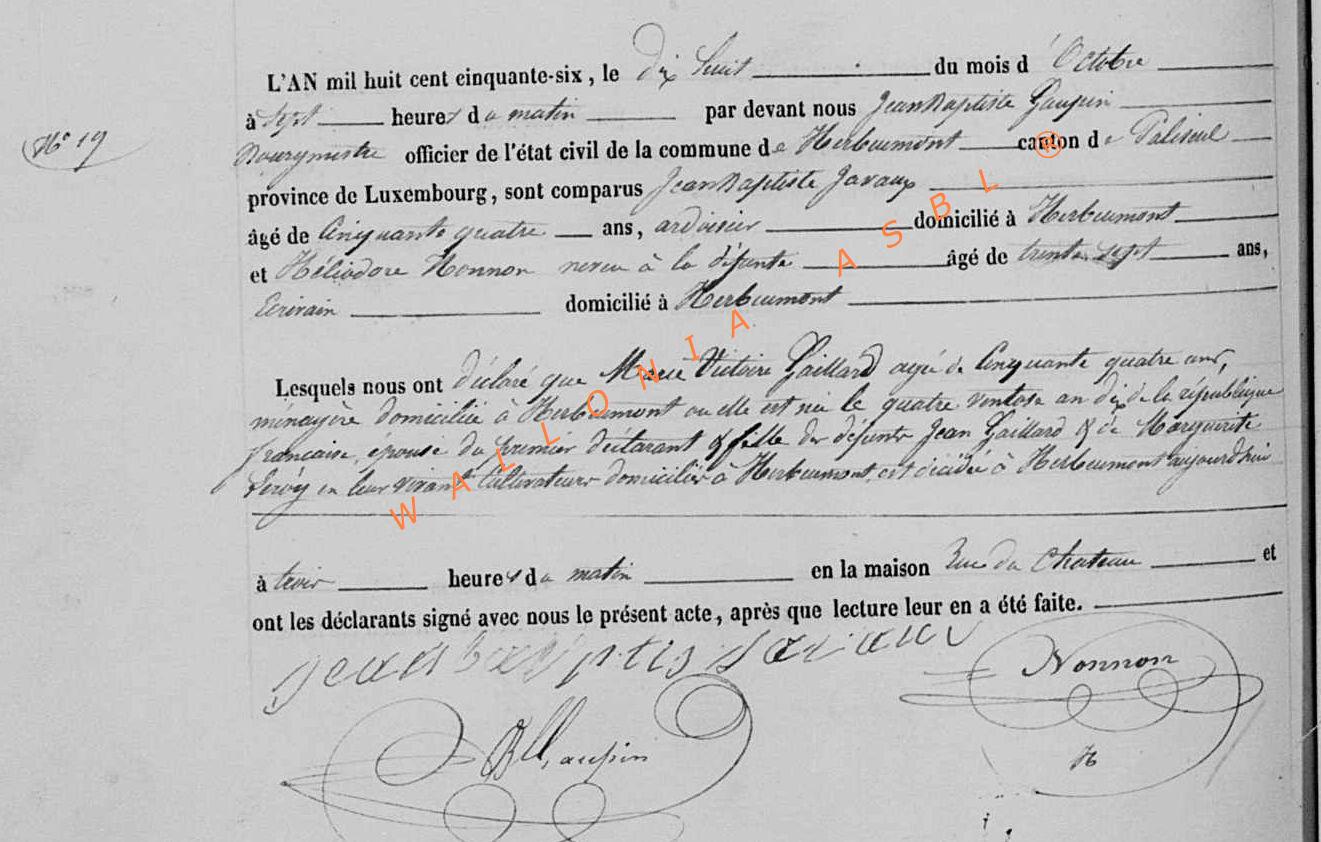 L'AN mil huit cent cinquante-six, le dix huit du mois d'Octobre
à sept heures du matin par devant nous Jean Baptiste Gaupin
N° 19
Bourgmestre officier de l'état civil de la commune de Herbeumont canton de Paliseul
province de Luxembourg, sont comparus Jean Baptiste Javaux
âgé de Cinquante quatre ans, ardoisier domicilié à Herbeumont
et Héliodore Nonnon neveu à la défunte âgé de trente sept ans,
Ecrivain domicilié à Herbeumont
Lesquels nous ont déclaré que Marie Victoire Gaillard agée de Cinquante quatre ans,
ménagère domiciliée à Herbeumont ou elle est née le quatre ventose an dix de la république
française, épouse du premier déclarant & fille des défunts Jean Gaillard & de Marguerite
en leur vivant Cultivateurs domiciliés à Herbeumont, est décédée à Herbeumont aujourd'hui
à trois heures du matin en la maison Rue du Chateau et
ont les déclarants signé avec nous le présent acte, après que lecture leur en a été faite.
Nonnon
H
WALLONIA ASBL ®